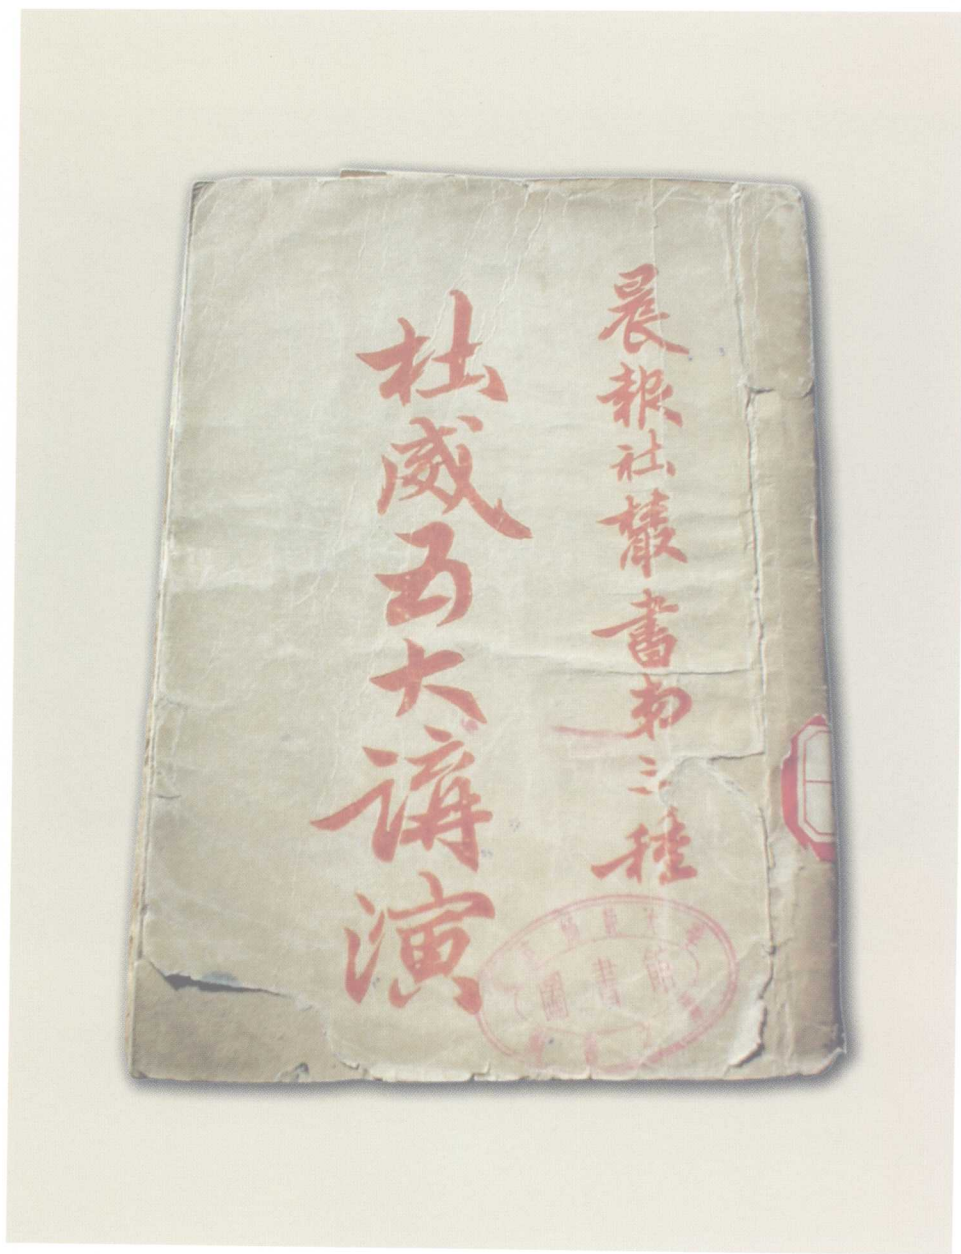 晨報社叢書第三種
杜威五大講演
圖書館